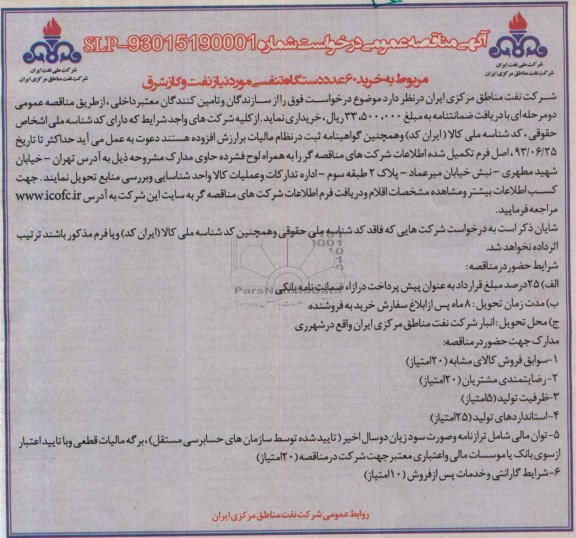 آگهی مناقصه عمومی درخواست شماره SLP-93015190001
شرکت ملی نفت ایران
شرکت نفت مناطق مرکزی ایران
شرکت ملی نفت ایران
شرکت نفت مناطق مرکزی ایران
مربوط به خرید ۶۰ عدد دستگاه تنفسی مورد نیاز نفت و گاز شرق
شرکت نفت مناطق مرکزی ایران در نظر دارد موضوع درخواست فوق را از سازندگان و تامین کنندگان معتبر داخلی ، از طریق مناقصه عمومی
دو مرحله ای با دریافت ضمانتنامه به مبلغ ۳۳،۵۰۰،۰۰۰ ریال، خریداری نماید. از کلیه شرکت های واجد شرایط که دارای کد شناسه ملی اشخاص
حقوقی ، کد شناسه ملی کالا ( ایران کد) و همچنین گواهینامه ثبت در نظام مالیات بر ارزش افزوده هستند دعوت به عمل می آید حداکثر تا تاریخ
۹۳/۰۶/۲۵، اصل فرم تکمیل شده اطلاعات شرکت های مناقصه گر را به همراه لوح فشرده حاوی مدارک مشروحه ذیل به آدرس تهران - خیابان
شهید مطهری - نبش خیابان میرعماد - پلاک ۲ طبقه سوم - اداره تدارکات و عملیات کالا واحد شناسایی و بررسی منابع تحویل نمایند. جهت
کسب اطلاعات بیشتر و مشاهده مشخصات اقلام و دریافت فرم اطلاعات شرکت های مناقصه گر به سایت این شرکت به آدرس www.icofc.ir
مراجعه فرمایید.
شایان ذکر است به درخواست شرکت هایی که فاقد کد شناسه ملی حقوقی و همچنین کد شناسه ملی کالا (ایران کد) و یا فرم مذکور باشند ترتیب
اثر داده نخواهد شد.
شرایط حضور در مناقصه:
الف) ۲۵ درصد مبلغ قرارداد به عنوان پیش پرداخت در ازاء ضمانت نامه بانکی
ب) مدت زمان تحویل : ۸ ماه پس از ابلاغ سفارش خرید به فروشنده
ج) محل تحویل : انبار شرکت نفت مناطق مرکزی ایران واقع در شهرری
مدارک جهت حضور در مناقصه:
۱-سوابق فروش کالای مشابه (۲۰امتیاز)
۲- رضایتمندی مشتریان (۲۰امتیاز)
۳-ظرفیت تولید (۵امتیاز)
۴-استانداردهای تولید (۲۵امتیاز)
۵- توان مالی شامل ترازنامه و صورت سود زیان دو سال اخیر ( تایید شده توسط سازمان های حسابرسی مستقل)، برگه مالیات قطعی و یا تایید اعتبار
از سوی بانک یا موسسات مالی و اعتباری معتبر جهت شرکت در مناقصه (۲۰امتیاز)
۶-شرایط گارانتی و خدمات پس از فروش (۱۰امتیاز)
روابط عمومی شرکت نفت مناطق مرکزی ایران